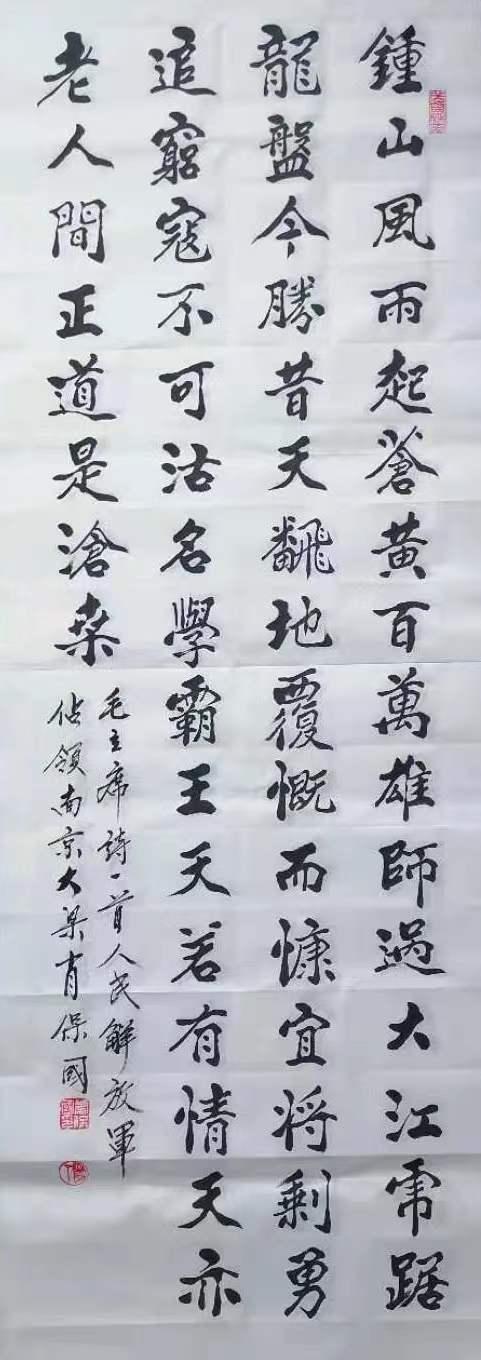 鍾山風雨起蒼黃百萬雄師過大江虎踞
龍盤今勝昔天飜地覆慨而慷宜将剩勇
追窮寇不可沽名學霸王天若有情天亦
老人間正道是滄桑
毛主席詩一首人民解放軍
佔領南京大梁肖保國